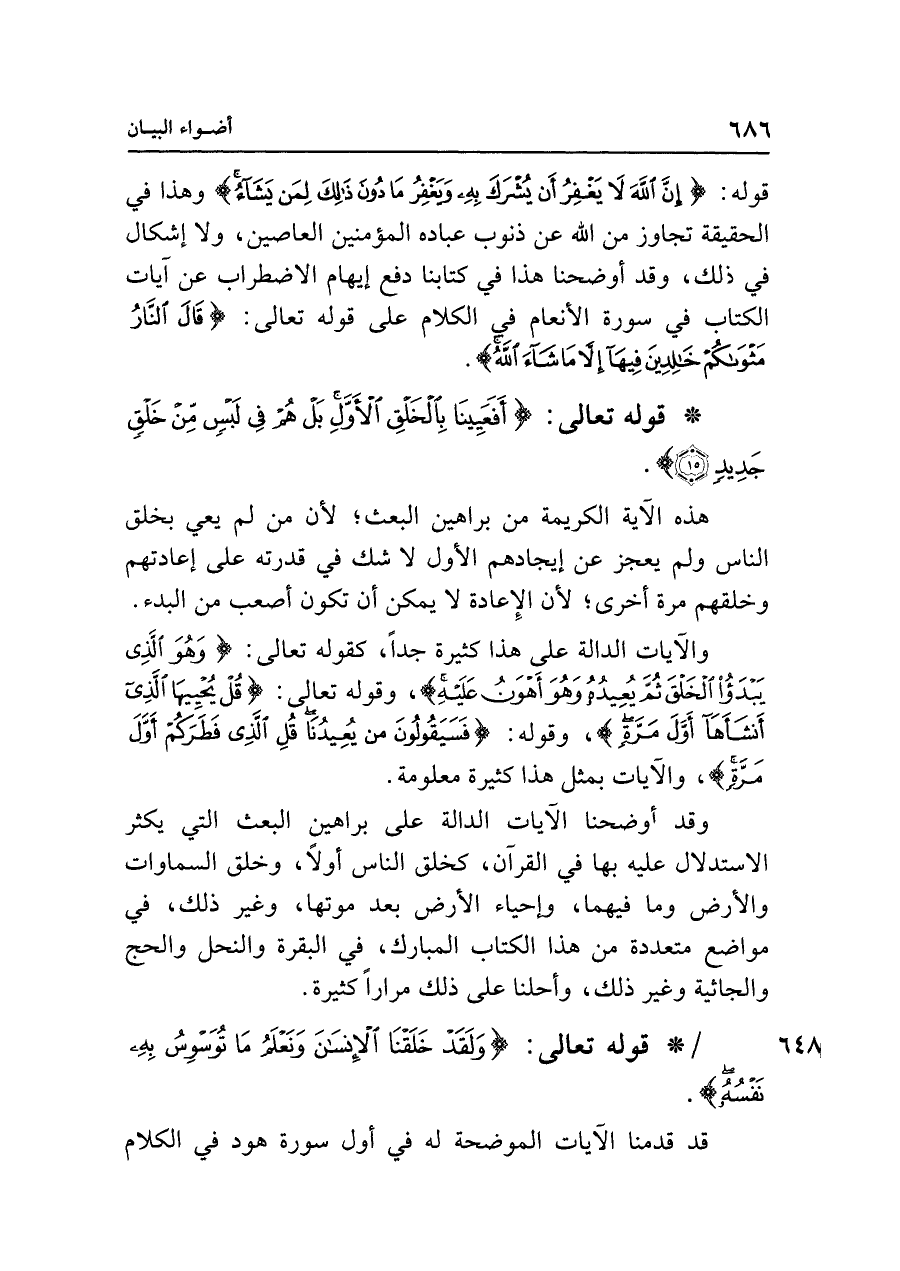 ٦٨٦ أضـواء البيـان
قوله: ﴿ إِنَّ ٱللَّهَ لَا يَغْفِرُ أَن يُشْرَكَ بِهِۦ وَيَغْفِرُ مَا دُونَ ذَٰلِكَ لِمَن يَشَآءُۚ﴾ وهذا في
الحقيقة تجاوز من الله عن ذنوب عباده المؤمنين العاصين، ولا إشكال
في ذلك، وقد أوضحنا هذا في كتابنا دفع إيهام الاضطراب عن آيات
الكتاب في سورة الأنعام في الكلام على قوله تعالى: ﴿ قَالَ ٱلنَّارُ
مَثْوَىٰكُمْ خَٰلِدِينَ فِيهَآ إِلَّا مَا شَآءَ ٱللَّهُۚ﴾ .
* قوله تعالى: ﴿ أَفَعَيِينَا بِٱلْخَلْقِ ٱلْأَوَّلِۚ بَلْ هُمْ فِى لَبْسٍ مِّنْ خَلْقٍ
جَدِيدٍ ١٥﴾ .
هذه الآية الكريمة من براهين البعث؛ لأن من لم يعي بخلق
الناس ولم يعجز عن إيجادهم الأول لا شك في قدرته على إعادتهم
وخلقهم مرة أخرى؛ لأن الإِعادة لا يمكن أن تكون أصعب من البدء.
والآيات الدالة على هذا كثيرة جداً، كقوله تعالى: ﴿ وَهُوَ ٱلَّذِى
يَبْدَؤُا۟ ٱلْخَلْقَ ثُمَّ يُعِيدُهُۥ وَهُوَ أَهْوَنُ عَلَيْهِۚ﴾، وقوله تعالى: ﴿ قُلْ يُحْيِيهَا ٱلَّذِىٓ
أَنشَأَهَآ أَوَّلَ مَرَّةٍۖ ﴾، وقوله: ﴿ فَسَيَقُولُونَ مَن يُعِيدُنَاۖ قُلِ ٱلَّذِى فَطَرَكُمْ أَوَّلَ
مَرَّةٍۚ﴾، والآيات بمثل هذا كثيرة معلومة.
وقد أوضحنا الآيات الدالة على براهين البعث التي يكثر
الاستدلال عليه بها في القرآن، كخلق الناس أولاً، وخلق السماوات
والأرض وما فيهما، وإحياء الأرض بعد موتها، وغير ذلك، في
مواضع متعددة من هذا الكتاب المبارك، في البقرة والنحل والحج
والجاثية وغير ذلك، وأحلنا على ذلك مراراً كثيرة.
٦٤٨ / * قوله تعالى: ﴿ وَلَقَدْ خَلَقْنَا ٱلْإِنسَٰنَ وَنَعْلَمُ مَا تُوَسْوِسُ بِهِۦ
نَفْسُهُۥۖ﴾ .
قد قدمنا الآيات الموضحة له في أول سورة هود في الكلام